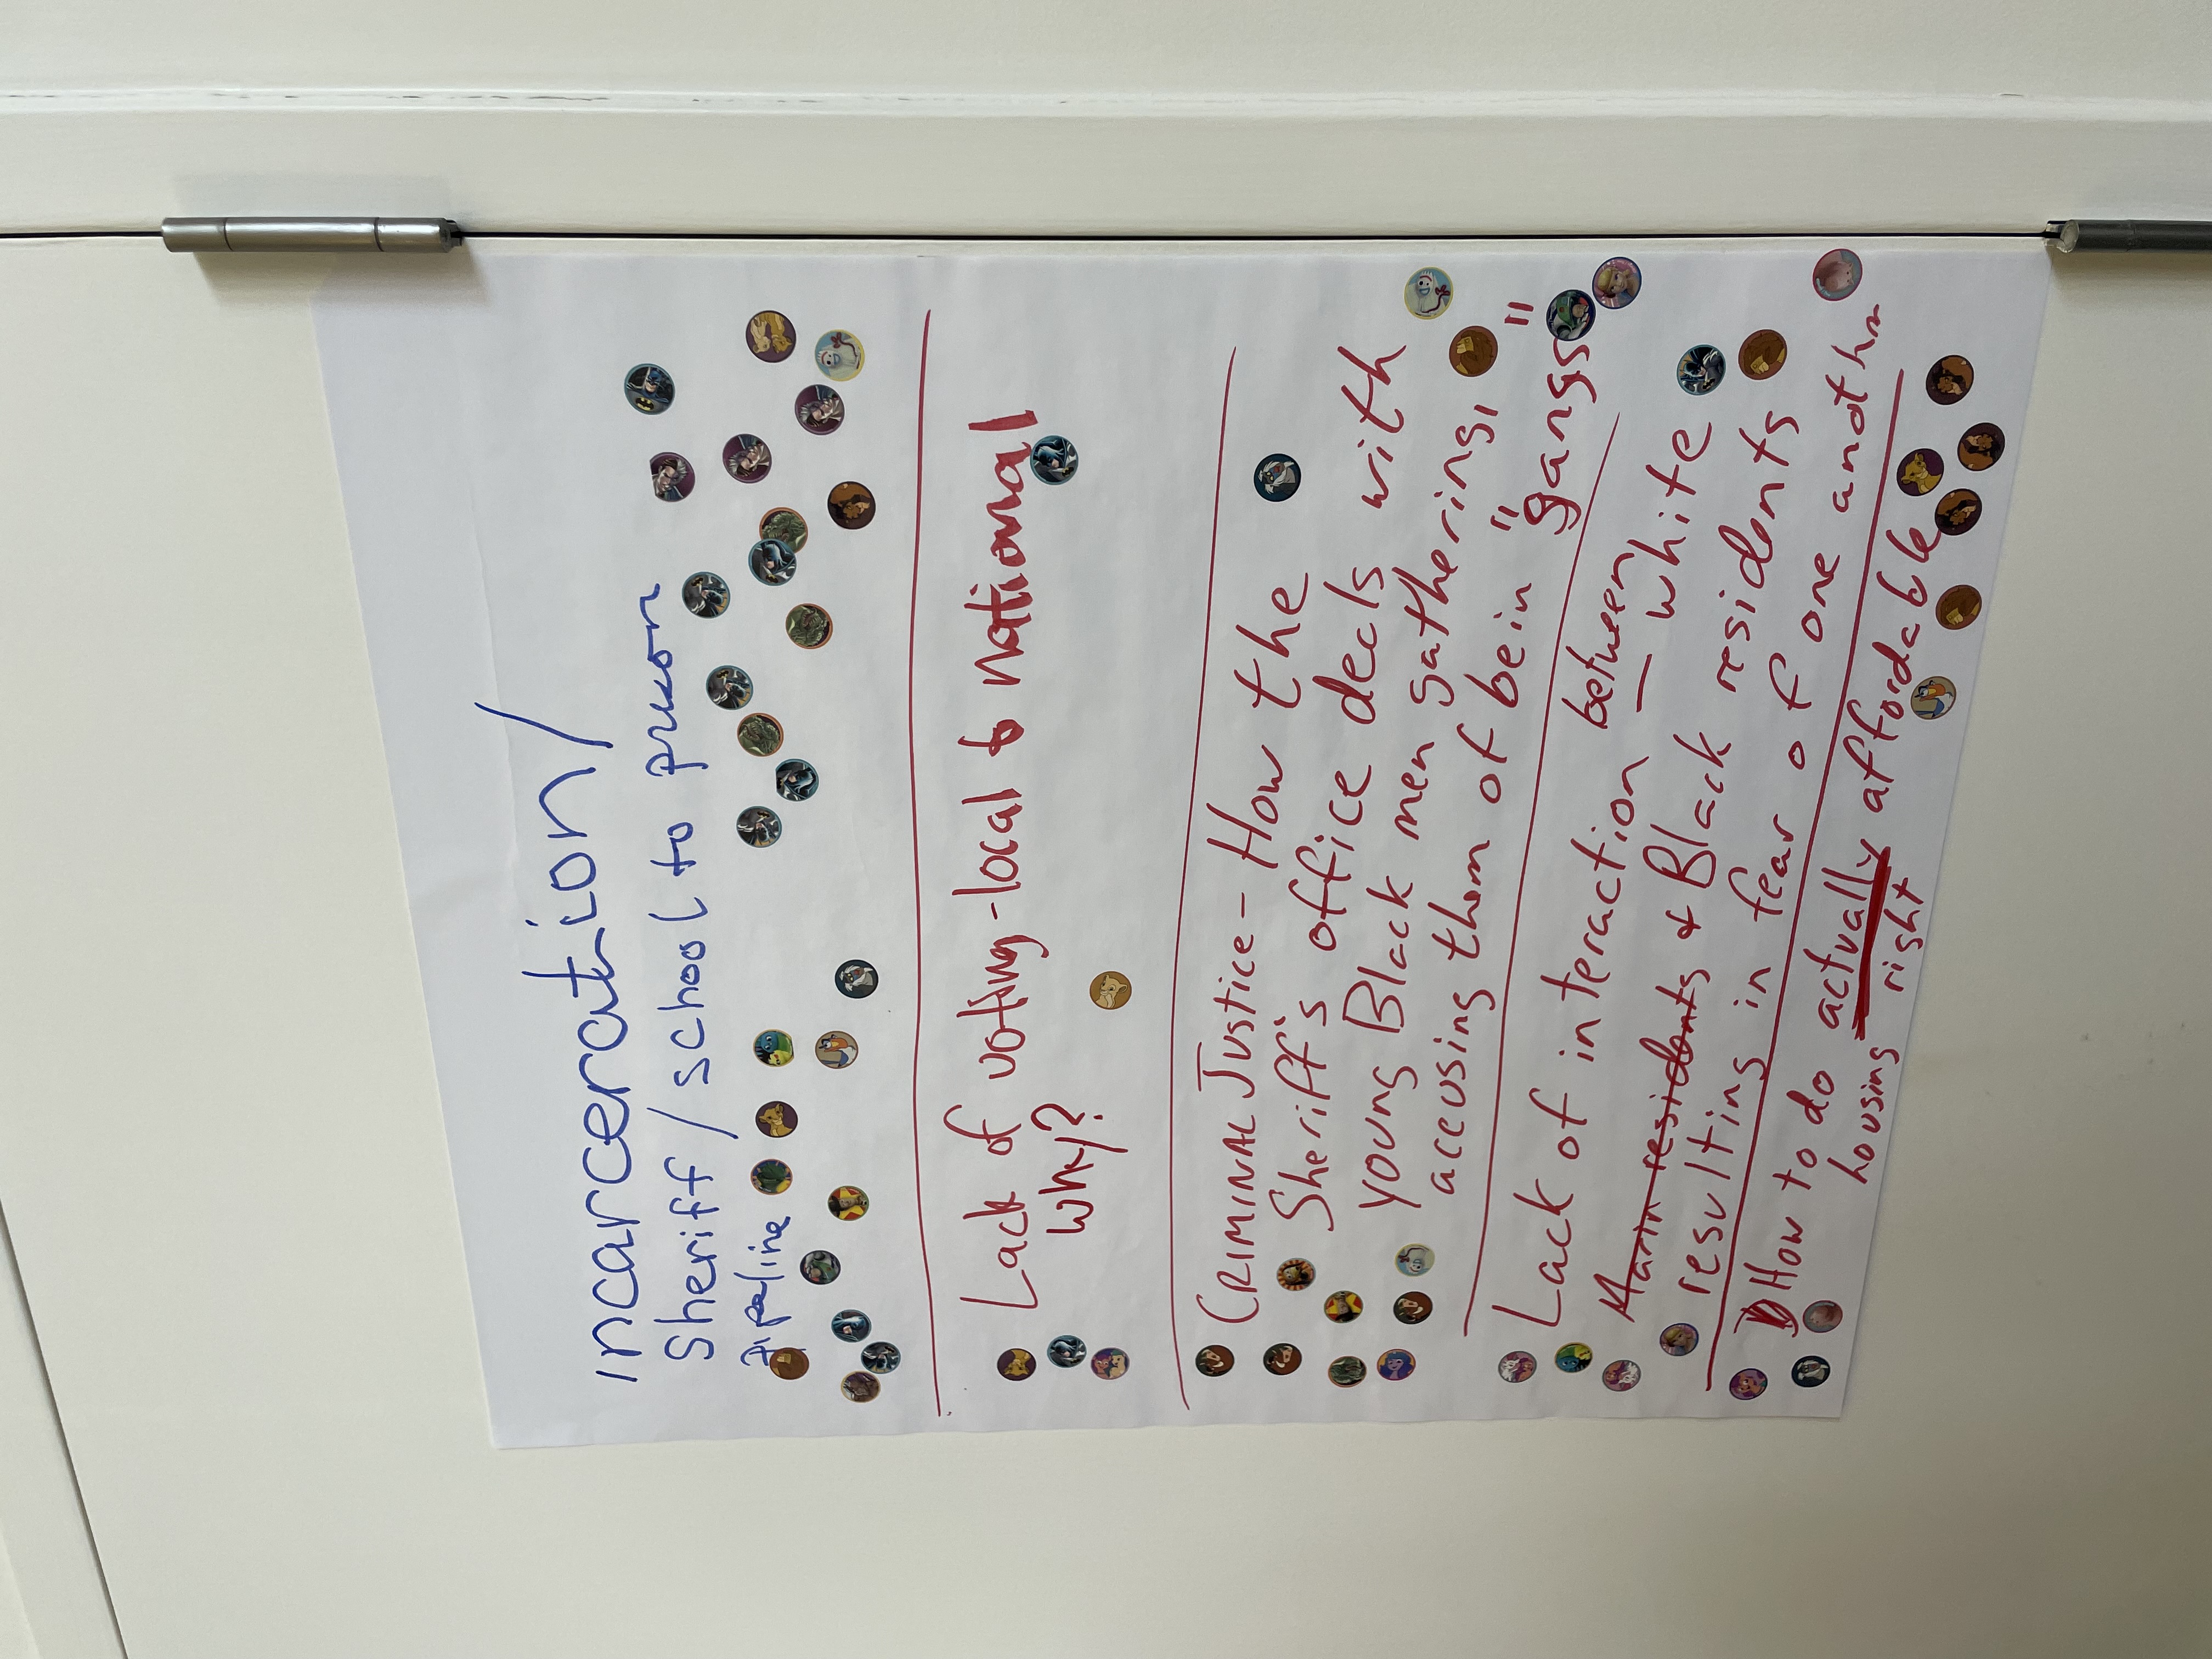 incarceration/
Sheriff / school to prison
pipeline
Lack of voting - local to national
Why?
CRIMINAL JUSTICE - How the
Sheriff's office deals with
young Black men gathering,
accusing them of bein "gangs"
Lack of interaction between
Marin residents — white
& Black residents
resulting in fear of one another
How to do actually affordable
housing right